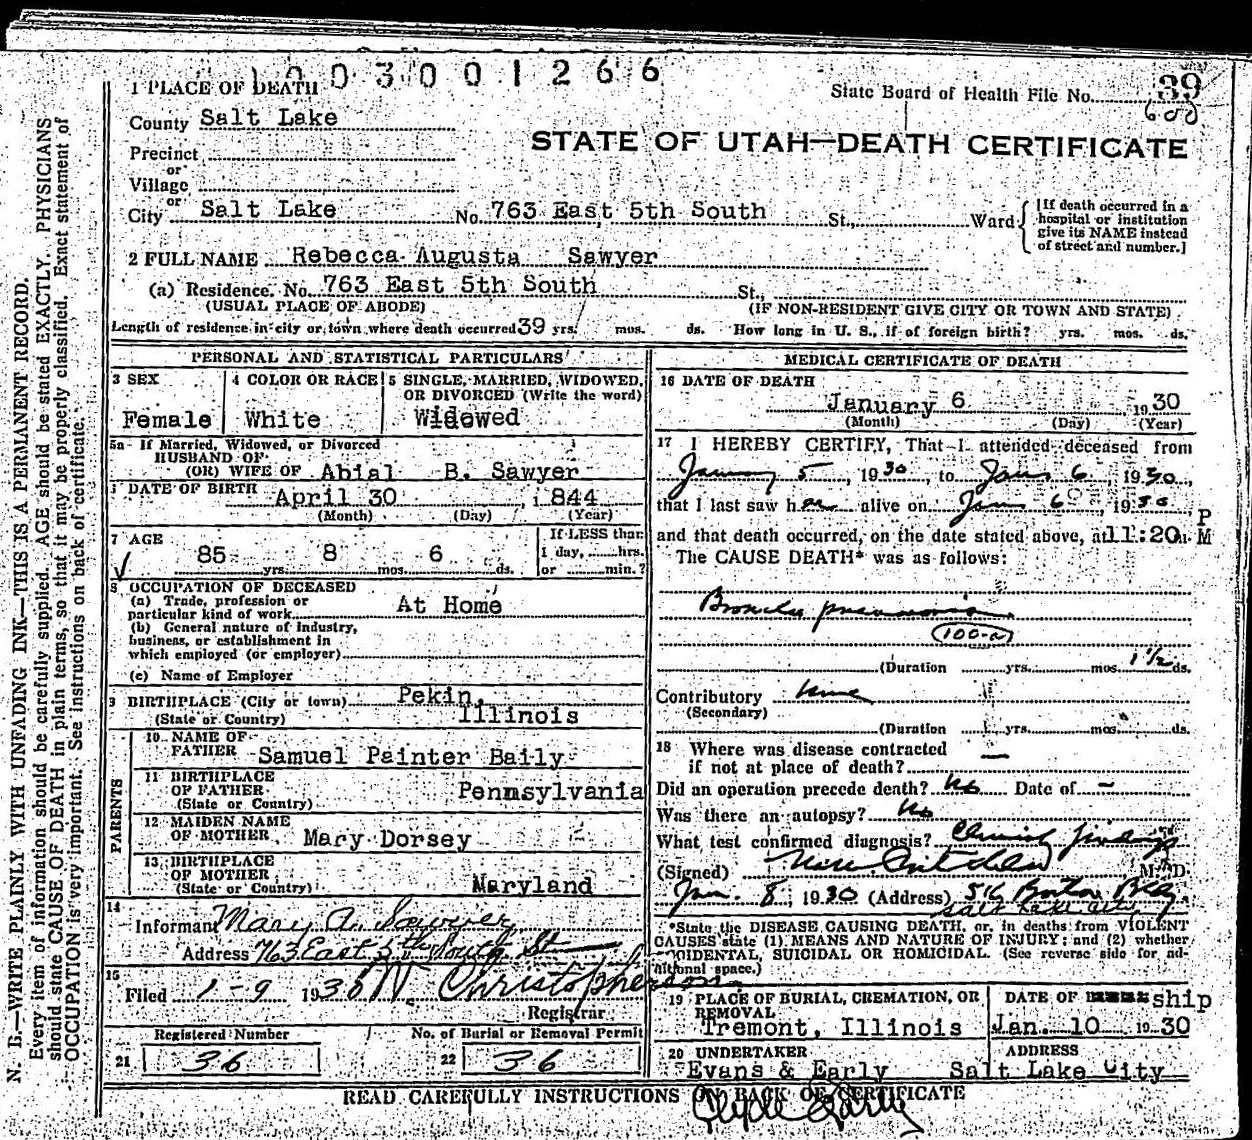 1003001266
1 PLACE OF DEATH
State Board of Health File No. 39
County Salt Lake
STATE OF UTAH—DEATH CERTIFICATE
Precinct
or
Village
or
City Salt Lake No. 763 East 5th South St., Ward
[If death occurred in a
hospital or institution
give its NAME instead
of street and number.]
2 FULL NAME Rebecca Augusta Sawyer
(a) Residence. No. 763 East 5th South St.,
(USUAL PLACE OF ABODE) (IF NON-RESIDENT GIVE CITY OR TOWN AND STATE)
Length of residence in city or town where death occurred 39 yrs. mos. ds. How long in U. S., if of foreign birth? yrs. mos. ds.
PERSONAL AND STATISTICAL PARTICULARS
3 SEX
Female
4 COLOR OR RACE
White
5 SINGLE, MARRIED, WIDOWED,
OR DIVORCED (Write the word)
Widowed
5a If Married, Widowed, or Divorced
HUSBAND OF
(OR) WIFE OF Abial B. Sawyer
DATE OF BIRTH April 30, 1844
(Month) (Day) (Year)
7 AGE
85 yrs. 8 mos. 6 ds.
If LESS than
1 day, hrs.
or min.?
8 OCCUPATION OF DECEASED
(a) Trade, profession or
particular kind of work At Home
(b) General nature of industry,
business, or establishment in
which employed (or employer)
(c) Name of Employer
9 BIRTHPLACE (City or town) Pekin,
(State or Country) Illinois
PARENTS
10 NAME OF
FATHER Samuel Painter Baily
11 BIRTHPLACE
OF FATHER
(State or Country) Pennsylvania
12 MAIDEN NAME
OF MOTHER Mary Dorsey
13 BIRTHPLACE
OF MOTHER
(State or Country) Maryland
14
Informant Mary A. Sawyer
Address 763 East 5th South St
15
Filed 1-9 1930 W. Christopherson
Registrar
Registered Number
21 36
No. of Burial or Removal Permit
22 36
MEDICAL CERTIFICATE OF DEATH
16 DATE OF DEATH
January 6 1930
(Month) (Day) (Year)
17 I HEREBY CERTIFY, That I attended deceased from
January 5, 1930, to Jan 6, 1930,
that I last saw her alive on Jan 6, 1930
and that death occurred, on the date stated above, at 11:20 P M
The CAUSE DEATH* was as follows:
Broncho pneumonia
100-a
(Duration yrs. mos. 1 1/2 ds.
Contributory none
(Secondary)
(Duration yrs. mos. ds.
18 Where was disease contracted
if not at place of death? —
Did an operation precede death? No Date of —
Was there an autopsy? No
What test confirmed diagnosis? Clinical findings
(Signed) M. D.
Jan. 8, 1930 (Address) 516 Boston Bldg.
Salt Lake City
*State the DISEASE CAUSING DEATH, or, in deaths from VIOLENT
CAUSES state (1) MEANS AND NATURE OF INJURY; and (2) whether
ACCIDENTAL, SUICIDAL OR HOMICIDAL. (See reverse side for ad-
ditional space.)
19 PLACE OF BURIAL, CREMATION, OR
REMOVAL
Tremont, Illinois
DATE OF ship
Jan. 10 1930
20 UNDERTAKER
Evans & Early
ADDRESS
Salt Lake City
READ CAREFULLY INSTRUCTIONS ON BACK OF CERTIFICATE
Clyde Early
N. B.—WRITE PLAINLY WITH UNFADING INK—THIS IS A PERMANENT RECORD.
Every item of information should be carefully supplied. AGE should be stated EXACTLY. PHYSICIANS
should state CAUSE OF DEATH in plain terms, so that it may be properly classified. Exact statement of
OCCUPATION is very important. See instructions on back of certificate.